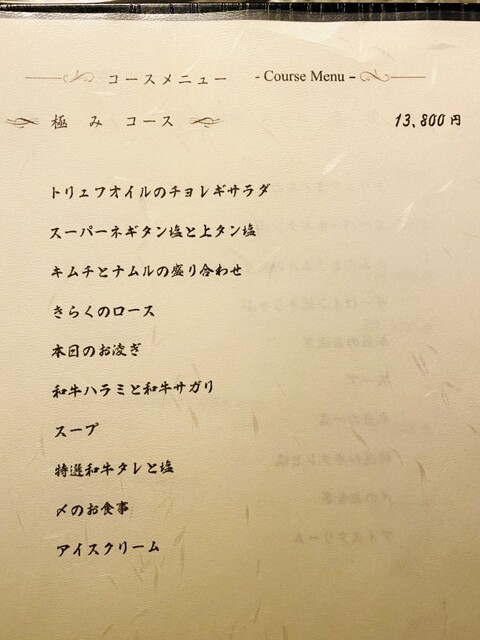 コースメニュー - Course Menu -
極 み コース 13,800円
トリュフオイルのチョレギサラダ
スーパーネギタン塩と上タン塩
キムチとナムルの盛り合わせ
きらくのロース
本日のお凌ぎ
和牛ハラミと和牛サガリ
スープ
特選和牛タレと塩
〆のお食事
アイスクリーム